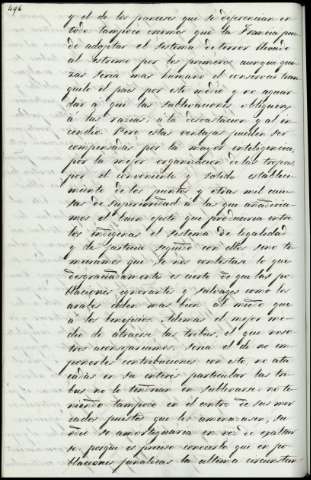 496
y el de los franceses que se diferencian en
todo tampoco creemos que la Francia pue
de adoptar el sistema de terror llevado
al estremo por los primeros, aunque qui
zas seria mas humano el conservar tran
quilo el pais por este medio y no aguar
dar á que las sublevaciones obliguen
á las razias, á la devastacion y al in
cendio. Pero estas ventajas pueden ser
compensadas por la mayor inteligencia,
por la mejor organizacion de las tropas
por el conveniente y solido estableci
miento de los puntos y otras mil cau
sas de superioridad á las que añadiria
mos el buen efecto que produciria entre
los indígenas el sistema de legalidad
y de justicia seguido con ellos sino te
mieramos que se nos contestase lo que
desgraciadamente es cierto de que las po
blaciones ignorantes y salvages como los
arabes ceden mas bien al miedo que
á los beneficios. Ademas el mejor me
dio de atraerse las tribus, el que noso
tros aconsejariamos seria el de no im
ponerles contribuciones con esto, no ata
cadas en su interés particular las tri
bus no le tendrian en sublevarse no te
niendo tampoco en el centro de sus mer
cados puestos que les amenazasen, su
odio se amortiguaria en vez de exaltar
se, porque es preciso conocerlo que en po
blaciones fanaticas la ultima circunstan